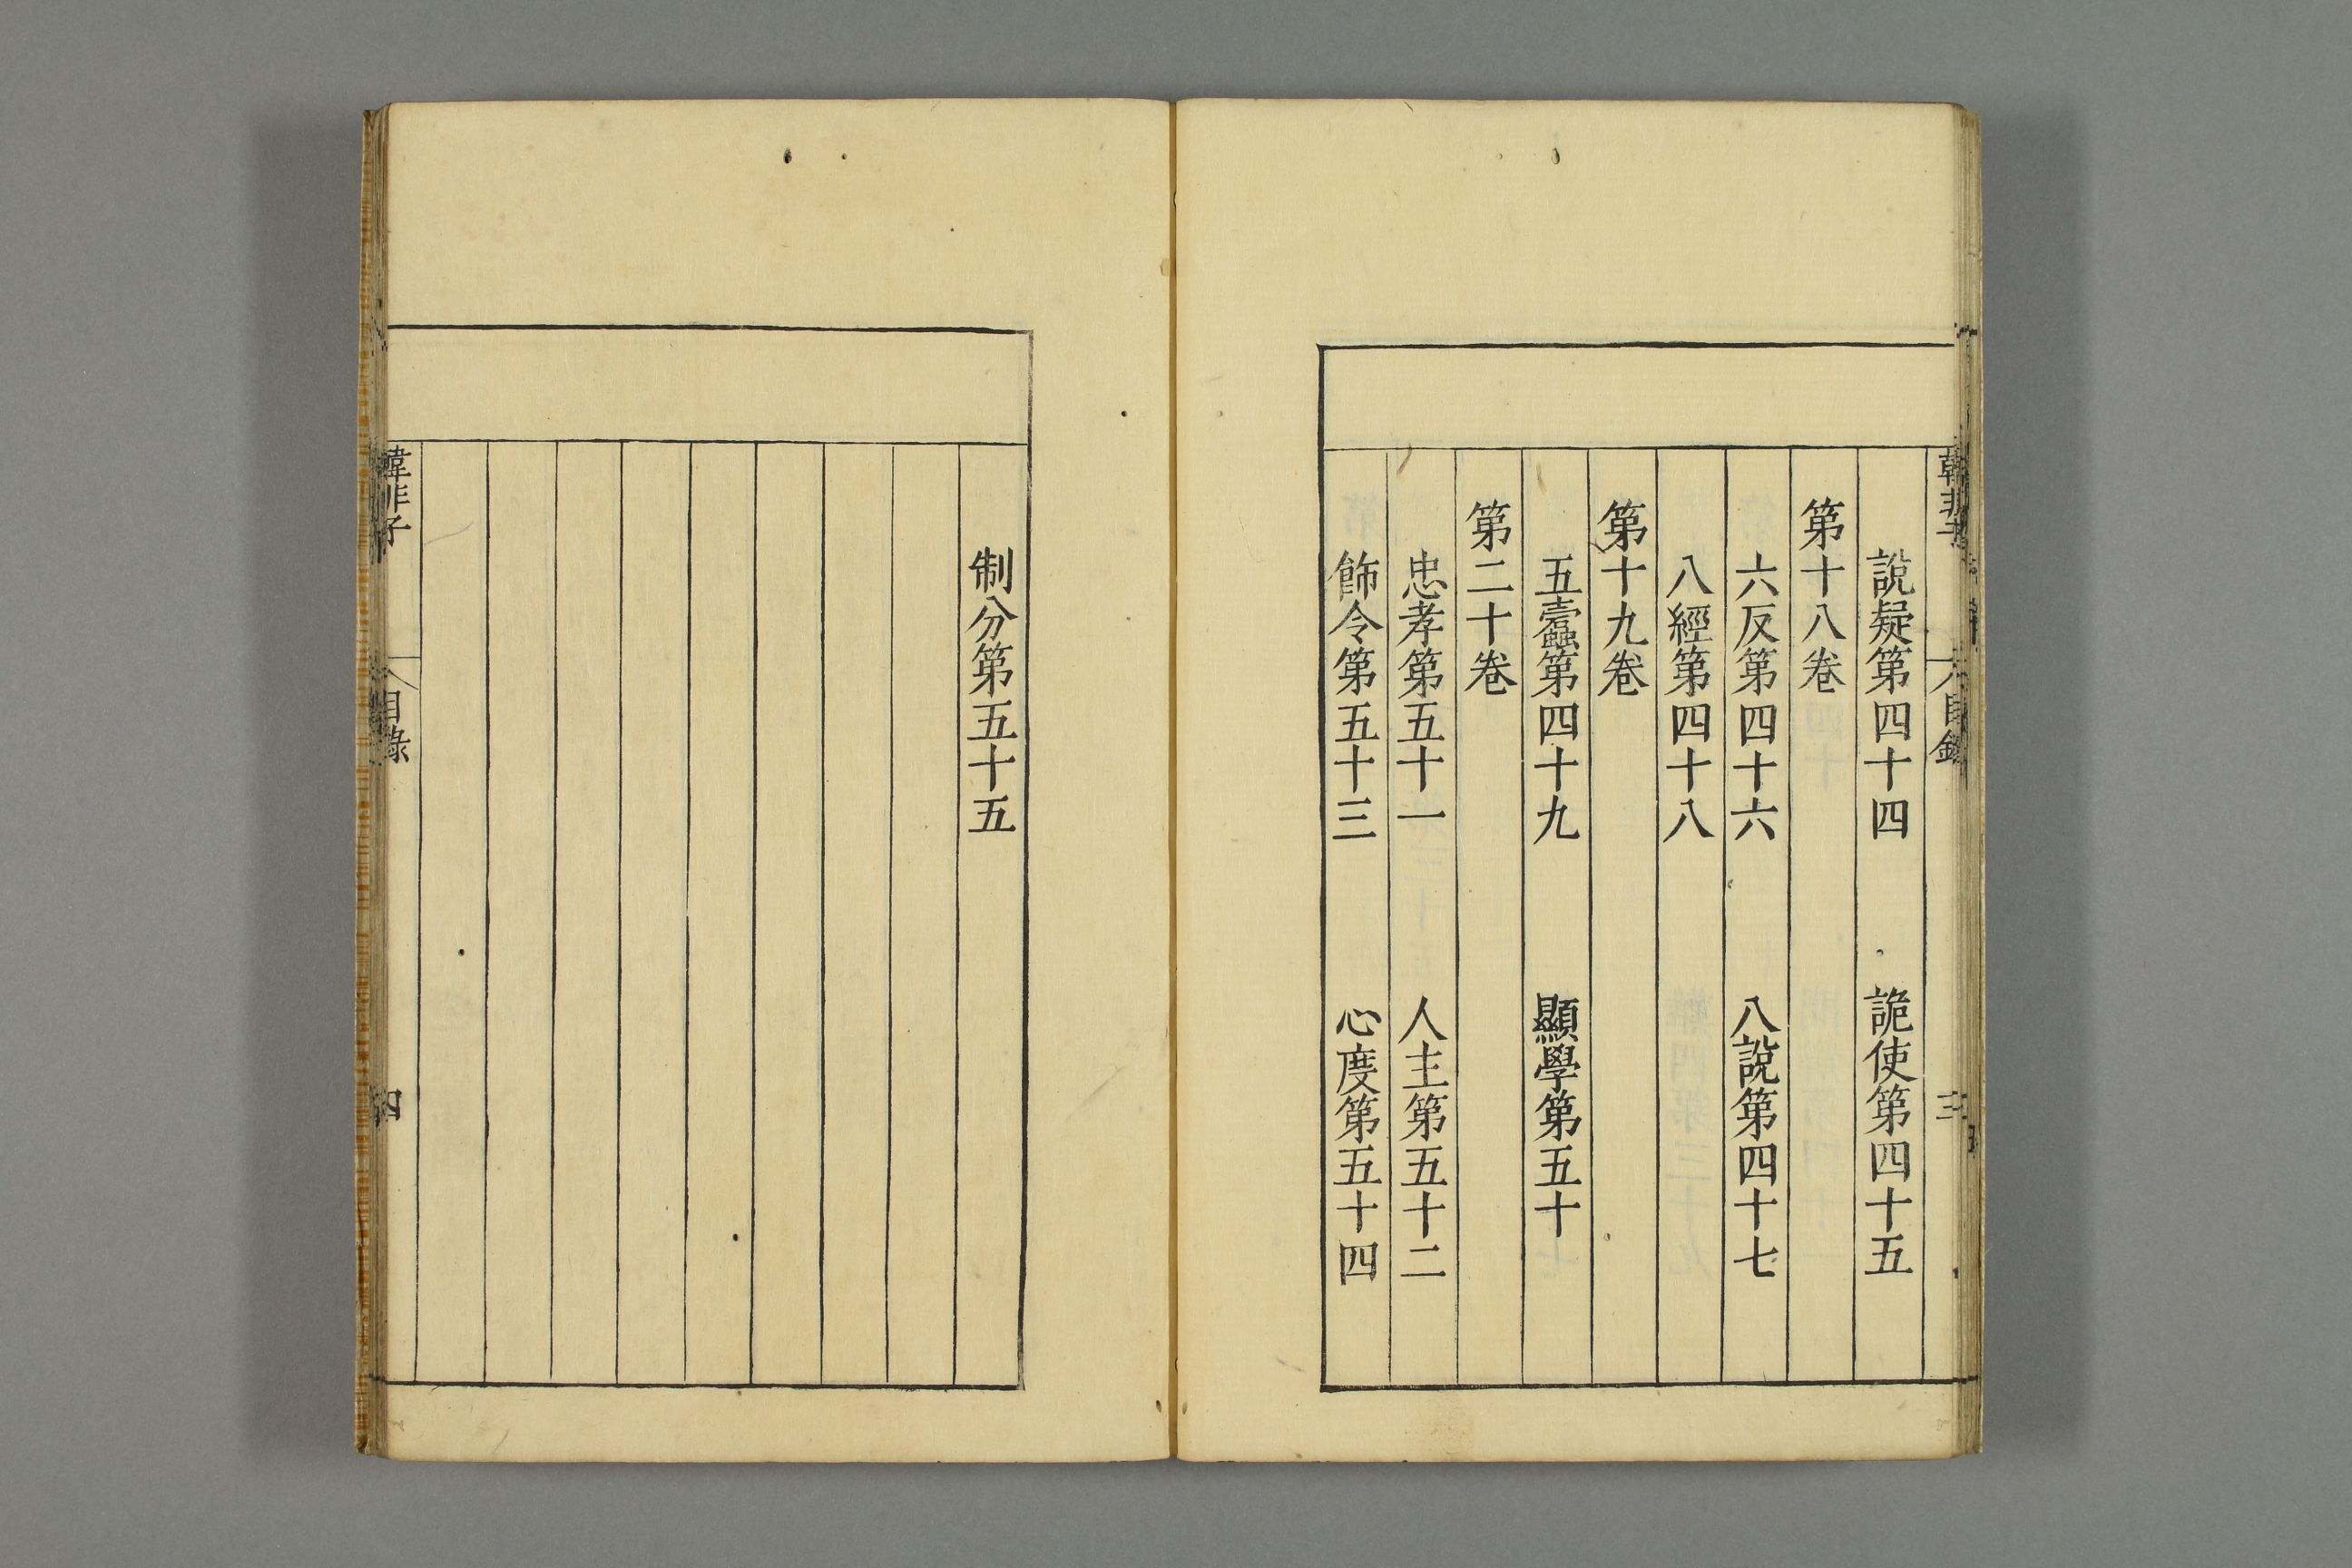 韓非子
目錄
三
說疑第四十四　詭使第四十五
第十八卷
六反第四十六　八說第四十七
八經第四十八
第十九卷
五蠹第四十九　顯學第五十
第二十卷
忠孝第五十一　人主第五十二
飾令第五十三　心度第五十四
制分第五十五
韓非子
目錄
四